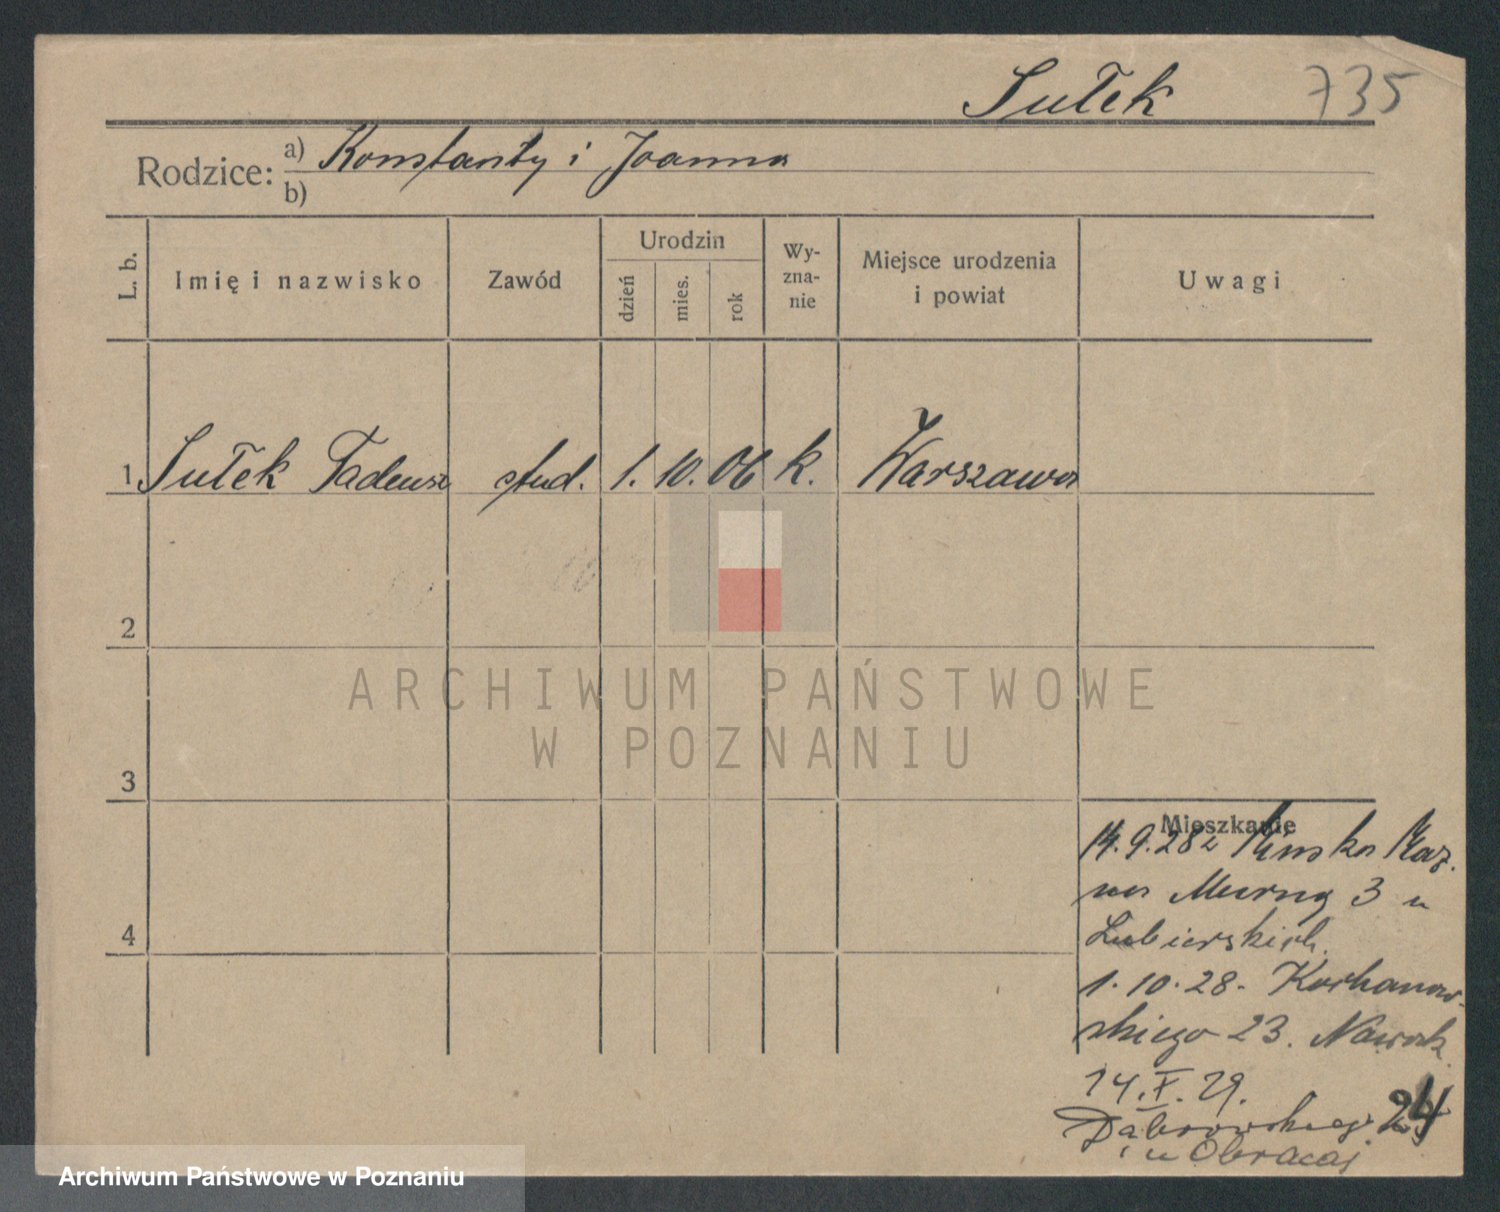 Sułek 735
Rodzice: a) Konstanty i Joanna
b)
L. b. Imię i nazwisko Zawód Urodzin dzień mies. rok Wyzna-nie Miejsce urodzenia i powiat Uwagi
1 Sułek Tadeusz stud. 1. 10. 06 k. Warszawa
2
3
4
Mieszkanie
14.9.28 z Mińska Maz.
na Murną 3 u
Lubierskich.
1.10.28. Kochanow-
skiego 23. Nawrok
14.X.29.
Dąbrowskiego 24
u Obracaj
ARCHIWUM PAŃSTWOWE
W POZNANIU
Archiwum Państwowe w Poznaniu